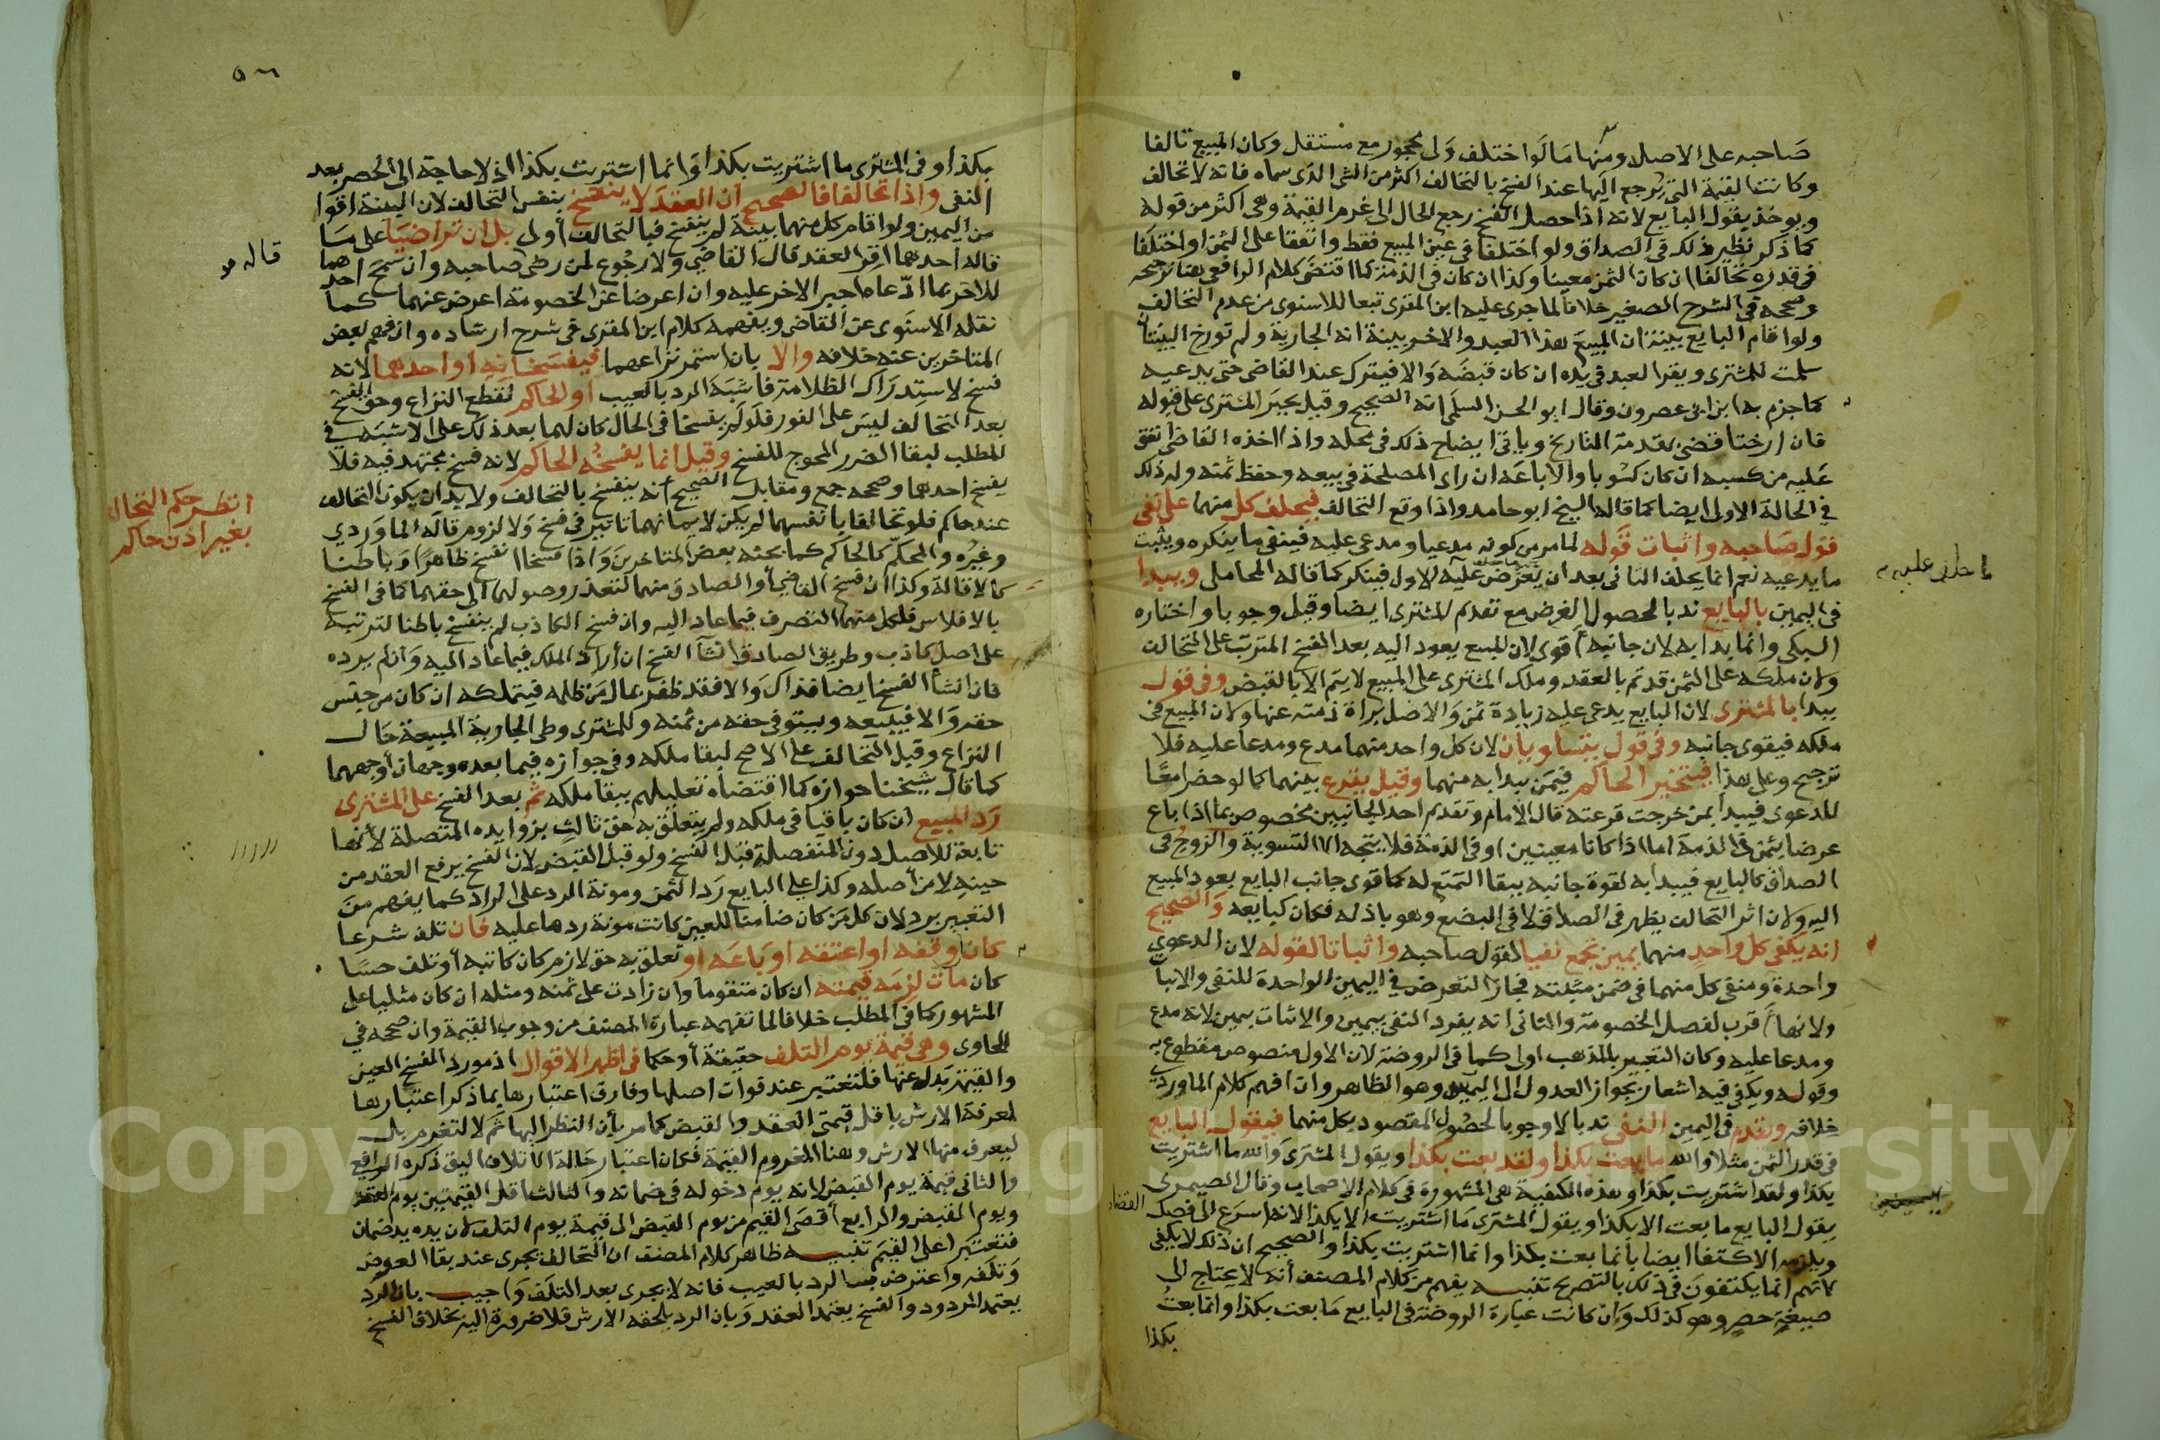 صاحبه على الاصل ومنها ما لو اختلف ولى محجور مع مستقل وكان المبيع تالفا
وكانت القيمة التى يرجع اليها عند الفسخ بالتحالف اكثر من الشى الذى سماه فانه لا تحالف
ويوخذ بقول البايع لانه اذا حصل الفسخ رجع الحال الى غرم القيمة وهى اكثر من قوله
كما ذكر نظير ذلك فى الصداق ولو اختلفا فى عين المبيع فقط واتفقا على الثمن او اختلفا
فى قدره تحالفا ان كان الثمن معينا وكذا ان كان فى الذمة كما اقتضى كلام الرافعى هنا ترجيحه
وصححه فى الشرح الصغير خلافا لما جرى عليه ابن المقرى تبعا للاسنوى من عدم التحالف
ولو اقام البايع بينة ان المبيع هذا العبد والاخر بينة انه الجارية ولم تورخ البينتان
سلمت للمشترى ويقر العبد فى يده ان كان قبضه والا فيترك عند القاضى حتى يدعيه
كما جزم به ابن ابى عصرون وقال ابو الحسن السلمى انه الصحيح وقيل يجبر المشترى على قبوله
فان ارختا قضى بمقدمة التاريخ وياتى ايضاح ذلك فى محله واذا اخذه القاضى انفق
عليه من كسبه ان كان كسوبا والا باعه ان راى المصلحة فى بيعه وحفظ ثمنه وله ذلك
فى الحالة الاولى ايضا كما قاله الشيخ ابو حامد واذا وقع التحالف فيحلف كل منهما على نفى
قول صاحبه واثبات قوله لما مر من كونه مدعيا ومدعى عليه فينفى ما ينكره ويثبت
ما يدعيه نعم انما يحلف الثانى بعد ان يعرض عليه الاول فينكر كما قاله المحاملى ويبدا
فى اليمين بالبايع ندبا لحصول الغرض مع تقديم المشترى ايضا وقيل وجوبا واختاره
السبكى وانما بدا به لان جانبه اقوى لان المبيع يعود اليه بعد الفسخ المترتب على التحالف
ولان ملكه على الثمن قد تم بالعقد وملك المشترى على المبيع لا يتم الا بالقبض وفى قول
يبدا بالمشترى لان البايع يدعى عليه زيادة ثمن والاصل براة ذمته عنها ولان المبيع فى
ملكه فيقوى جانبه وفى قول يتساويان لان كل واحد منهما مدع ومدعا عليه فلا
ترجيح وعلى هذا فيتخير الحاكم فيمن يبدا به منهما وقيل يقرع بينهما كما لو حضرا معا
للدعوى فيبدا بمن خرجت قرعته قال الامام وتقديم احد الجانبين مخصوص بما اذا باع
عرضا بثمن فى الذمة اما اذا كانا معينين او فى الذمة فلا يتجه الا التسوية والزوج فى
الصداق كالبايع فيبدا به لقوة جانبه ببقا التمتع له كما قوى جانب البايع بعود المبيع
اليه ولان اثر التحالف يظهر فى الصداق لا فى البضع وهو باذله فكان كبايعه والصحيح
انه يكفى كل واحد منهما يمين تجمع نفيا لقول صاحبه واثباتا لقوله لان الدعوى
واحدة ومنفى كل منهما فى ضمن مثبته فجاز التعرض فى اليمين الواحدة للنفى والاثبا
ولانها اقرب لفصل الخصومة والثانى انه يفرد النفى بيمين والاثبات بيمين لانه مدع
ومدعا عليه وكان التعبير بالمذهب اولى كما فى الروضة لان الاول منصوص مقطوع به
وقوله ويكفى فيه اشعار بجواز العدول الى اليمين وهو الظاهر وان افهم كلام الماوردى
خلافه وتقدم فى اليمين النفى ندبا لا وجوبا لحصول المقصود بكل منهما فيقول البايع
فى قدر الثمن مثلا والله ما بعت بكذا ولقد بعت بكذا ويقول المشترى والله ما اشتريت
بكذا ولقد اشتريت بكذا وهذه الكيفية هى المشهورة فى كلام الاصحاب وقال الصيمرى
يقول البايع ما بعت الا بكذا ويقول المشترى ما اشتريت الا بكذا لانه اسرع الى فصل القضا
ويلزم الاكتفا ايضا بانما بعت بكذا وانما اشتريت بكذا والصحيح ان ذلك لا يكفى
لانهم انما يكتفون فى ذلك بالتصريح تنبيه يفهم من كلام المصنف أنه لا يحتاج الى
صيغة حصر وهو كذلك وان كانت عبارة الروضة فى البايع ما بعت بكذا وانما بعت
بكذا
٥٠٦
بكذا وفى المشترى ما اشتريت بكذا وانما اشتريت بكذا اذ لا حاجة الى الحصر بعد
النفى واذا تحالفا فالصحيح ان العقد لا ينفسخ بنفس التحالف لان البينة اقوا
من اليمين ولو اقام كل منهما بينة لم ينفسخ فبالتحالف أولى بل ان تراضيا على ما
قاله احدهما اقر العقد قال القاضى ولا رجوع لمن رضى صاحبه وان سمح احدهما
للاخر بما ادعاه اجبر الاخر عليه وان اعرضا عن الخصومة اعرض عنهما كما
نقله الاسنوى عن القاضى ويفهمه كلام ابن المقرى فى شرح ارشاده وان فهم بعض
المتاخرين عنه خلافه والا بان استمر نزاعهما فيفسخانه او احدهما لانه
فسخ لاستدراك الظلامة فاشبه الرد بالعيب او الحاكم لقطع النزاع وحق الفسخ
بعد التحالف ليس على الفور فلو لم يفسخا فى الحال كان لهما بعد ذلك على الاشبه فى
المطلب لبقا الضرر المحوج للفسخ وقيل انما يفسخه الحاكم لانه فسخ مجتهد فيه فلا
يفسخ احدهما وصححه جمع ومقابل الصحيح أنه ينفسخ بالتحالف ولا بد ان يكون التحالف
عند حاكم فلو تحالفا بانفسهما لم يكن لايمانهما تاثير فى فسخ ولا لزوم قاله الماوردي
وغيره والمحكم كالحاكم كما بحثه بعض المتاخرين واذا فسخا انفسخ ظاهرا وباطنا
كالاقالة وكذا ان فسخ القاضى أو الصادق منهما لتعذر وصولهما الى حقهما كما فى الفسخ
بالافلاس فلكل منهما التصرف فيما عاد اليه وان فسخ الكاذب لم ينفسخ باطنا لترتبه
على اصل كاذب وطريق الصادق انشا الفسخ ان أراد الملك فيما عاد اليه وان لم يرده
فان انشأ الفسخ ايضا فذاك والا فقد ظفر بمال من ظلمه فيتملكه ان كان من جنس
حقه والا فيبيعه ويستوفى حقه من ثمنه وللمشترى وطى الجارية المبيعة حال
النزاع وقبل التحالف على الاصح لبقا ملكه وفى جوازه فيما بعده وجهان أوجههما
كما قال شيخنا جوازه كما اقتضاه تعليلهم ببقا ملكه ثم بعد الفسخ على المشترى
رد المبيع ان كان باقيا فى ملكه ولم يتعلق به حق ثالث بزوايده المتصلة لأنها
تابعة للاصل دون المنفصلة قبل الفسخ ولو قبل القبض لان الفسخ يرفع العقد من
حينه لا من أصله وكذا على البايع رد الثمن ومونة الرد على الراد كما يفهم من
التعبير برد لان كل من كان ضامنا للعين كانت مونة ردها عليه فان تلف شرعا
كان وقفه او اعتقه او باعه او تعلق به حق لازم كان كاتبه أو تلف حسا
كان مات لزمه قيمته ان كان متقوما وان زادت على ثمنه ومثله ان كان مثليا على
المشهور كما فى المطلب خلافا لما تفهمه عبارة المصنف من وجوب القيمة وان صححه فى
الحاوى وهى قيمة يوم التلف حقيقة أو حكما فى اظهر الاقوال اذ مورد الفسخ العين
والقيمة بدل عنها فلتعتبر عند فوات اصلها وفارق اعتبارها بما ذكر اعتبارها
لمعرفة الارش باقل قيمتى العقد والقبض كما مر بأن النظر اليها ثم لا لتغرم بل
ليعرف منها الارش وهنا المغروم القيمة فكان اعتبار حالة الاتلاف اليق ذكره الرافعى
والثانى قيمة يوم القبض لانه يوم دخوله فى ضمانه والثالث اقل القيمتين يوم العقد
ويوم القبض والرابع أقصى القيم من يوم القبض الى قيمة يوم التلف لان يده يد ضمان
فتعتبر اعلى القيم تنبيه ظاهر كلام المصنف ان التحالف يجرى عند بقا العوض
وتلفه واعترض بمسالة الرد بالعيب فانه لا يجرى بعد التلف واجيب بان الرد
يعتمد المردود والفسخ يعتمد العقد وبان الرد يلحقه الارش فلا ضرورة اليه بخلاف الفسخ
انظر حكم التحال
بغير اذن حاكم
Copy King University